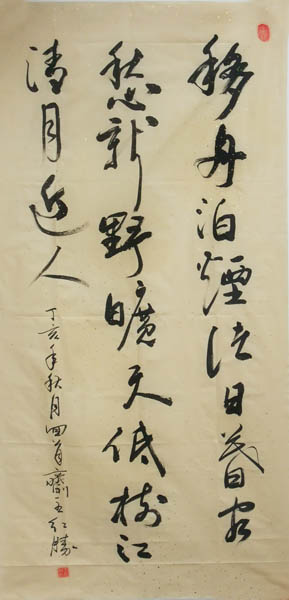 移舟泊煙渚日暮客
愁新野曠天低樹江
清月近人
丁亥年秋月四齋王红勝